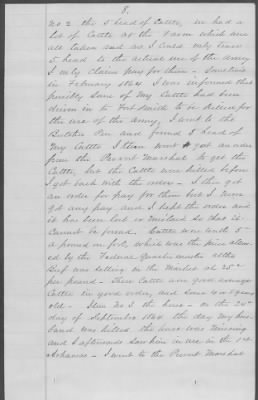 8.
no 2 the 5 head of Cattle, we had a
lot of Cattle at the Farm which were
all taken and as I could only trace
5 head to the actual use of the army
I only claim pay for them - Sometime
in February 1864 I was informed that
possibly some of My Cattle had been
driven in to Fort Smith to be killed for
the use of the army, I went to the
Butcher Pen and found 5 head of
My Cattle I then went & got an order
from the Provost Marshal to get the
Cattle, but the Cattle were killed before
I got back with the order - I then got
an order for pay for them but I never
got any pay, and I kept the order and
it has been lost or mislaid so that it
cannot be found. Cattle were worth 5¢
a pound on foot, which was the price allow
ed by the Federal Quartermaster altho
Beef was selling in the Market at 25¢
per pound - These Cattle were good average
Cattle in good order, and some 4 or 5 years
old - Item No 3 the horse - on the 25th
day of September 1864 the day My hus-
band was killed the horse was Missing
and I afterwards saw him in use in the 1st
Arkansas - I went to the Provost Marshal